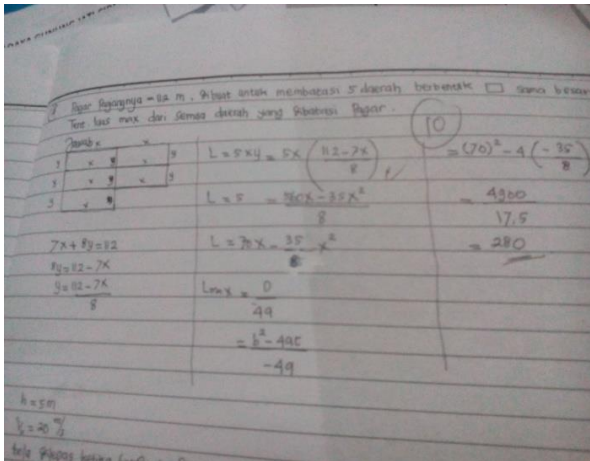 7 Pagar Panjangnya = 112 m. Dibuat untuk membatasi 5 daerah berbentuk □ sama besar
Tent luas max dari semua daerah yang dibatasi Pagar.
Jawab
x x
y x y x y
y x y x y
y x y
7x + 8y = 112
8y = 112 - 7x
y = 112 - 7x
8
L = 5xy = 5x (112 - 7x / 8)
L = 5 = 560x - 35x²
8
L = 70x - 35/8 x²
Lmax = D
4a
= b² - 4ac
-4a
10
= (70)² - 4 (-35/8
= 4900
17.5
= 280
h = 5m
= 20 m/s